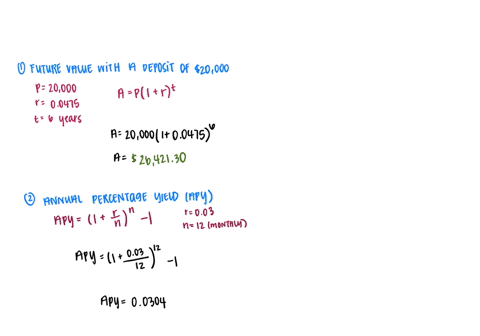 ① FUTURE VALUE WITH A DEPOSIT OF $20,000
P = 20,000
r = 0.0475
t = 6 years
A = P(1 + r)^t
A = 20,000(1 + 0.0475)^6
A = $26,421.30
② ANNUAL PERCENTAGE YIELD (APY)
APY = (1 + r/n)^n - 1
r = 0.03
n = 12 (MONTHLY)
APY = (1 + 0.03/12)^12 - 1
APY = 0.0304